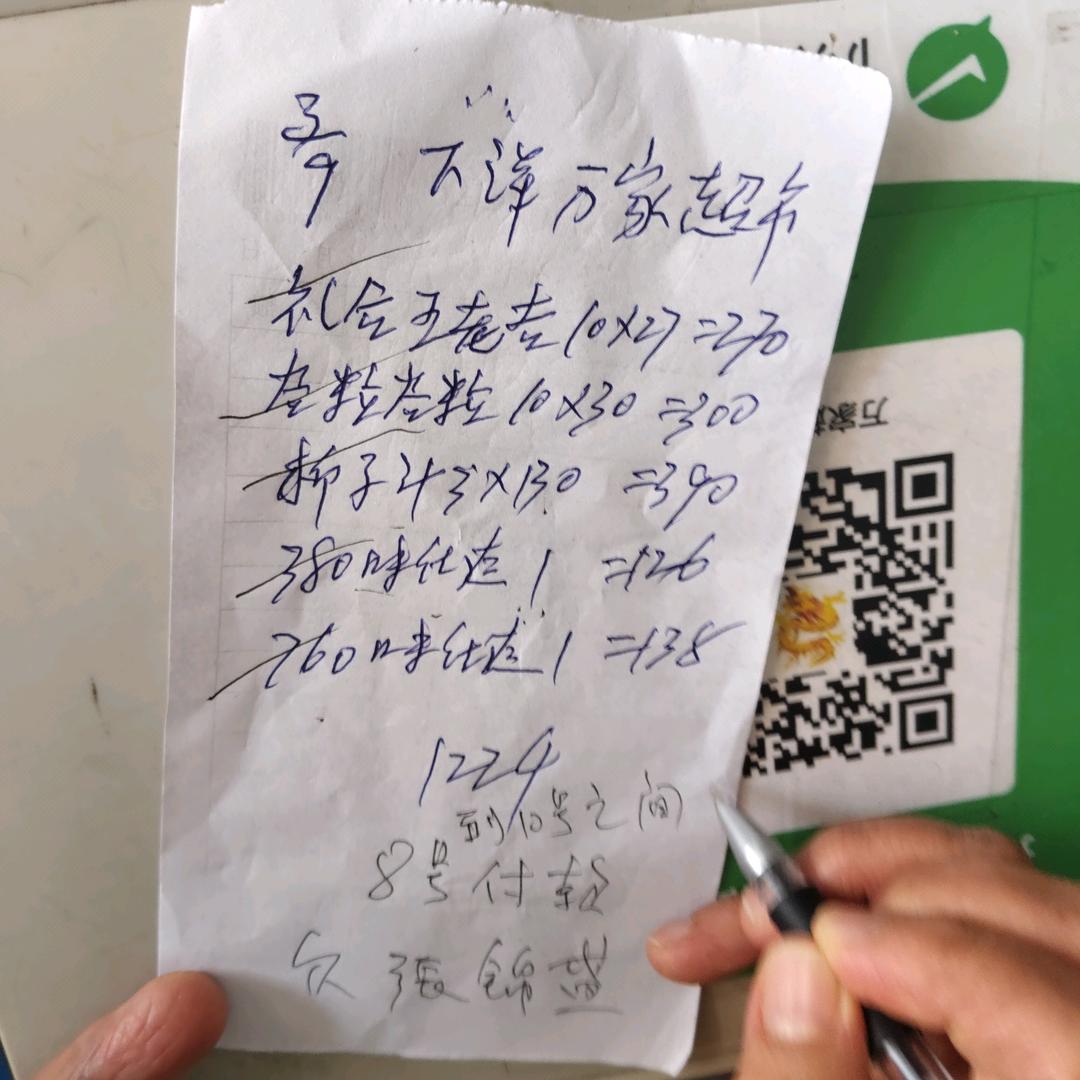 3/9 下洋万家超市
礼合王老吉 10×27 =270
杏粒杏粒 10×30 =300
椰子 435×130 =390
380味仕达 1 =126
760味仕达 1 =138
1224
到10号之间
8号付款
欠 張錦盛
万家